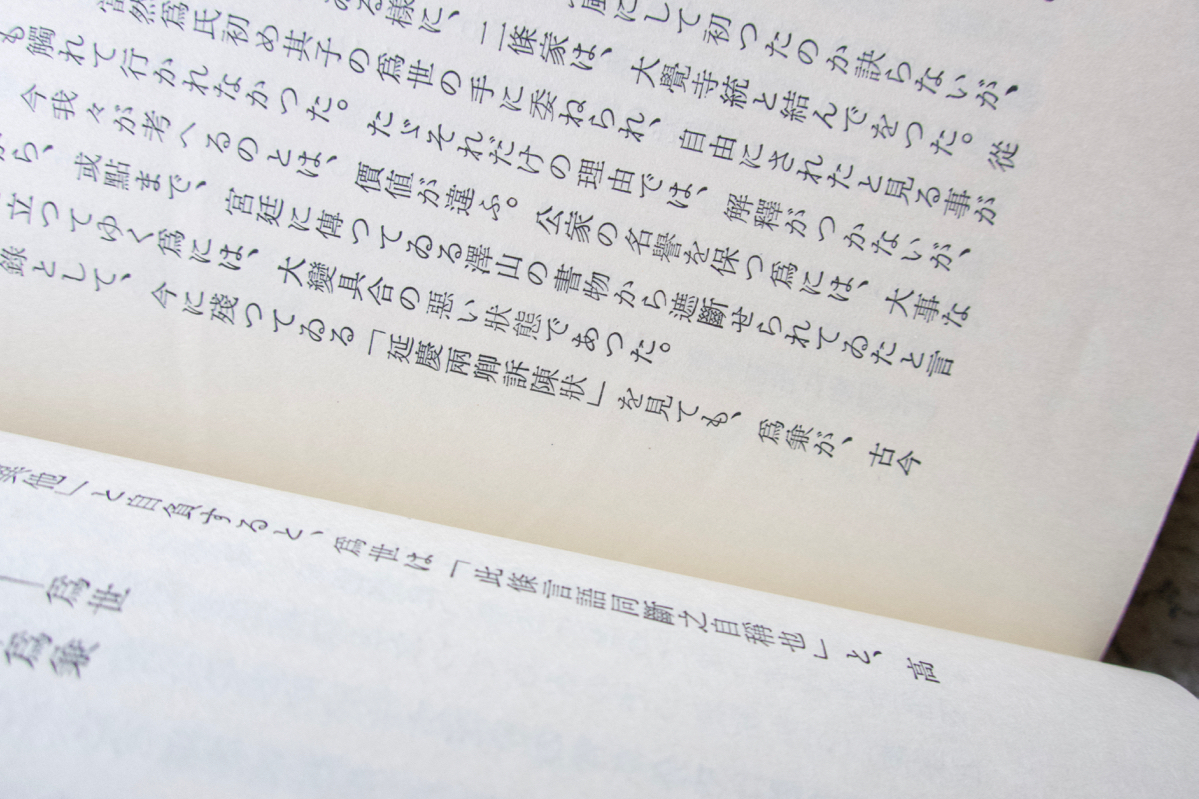 にして初つたのか訣らないが、
る樣に、二條家は、大覺寺統と結んでをつた。從
當然爲氏初め其子の爲世の手に委ねられ、自由にされたと見る事が
も觸れて行かれなかつた。たゞそれだけの理由では、解釋がつかないが、
今我々が考へるのとは、價値が違ふ。公家の名譽を保つ爲には、大事な
から、或點まで、宮廷に傳つてゐる澤山の書物から遮斷せられてゐたと言
立つてゆく爲には、大變具合の惡い狀態であつた。
錄として、今に殘つてゐる「延慶兩卿訴陳狀」を見ても、爲兼が、古今
他」と自負すると、爲世は「此條言語同斷之自稱也」と、高
爲世
爲兼